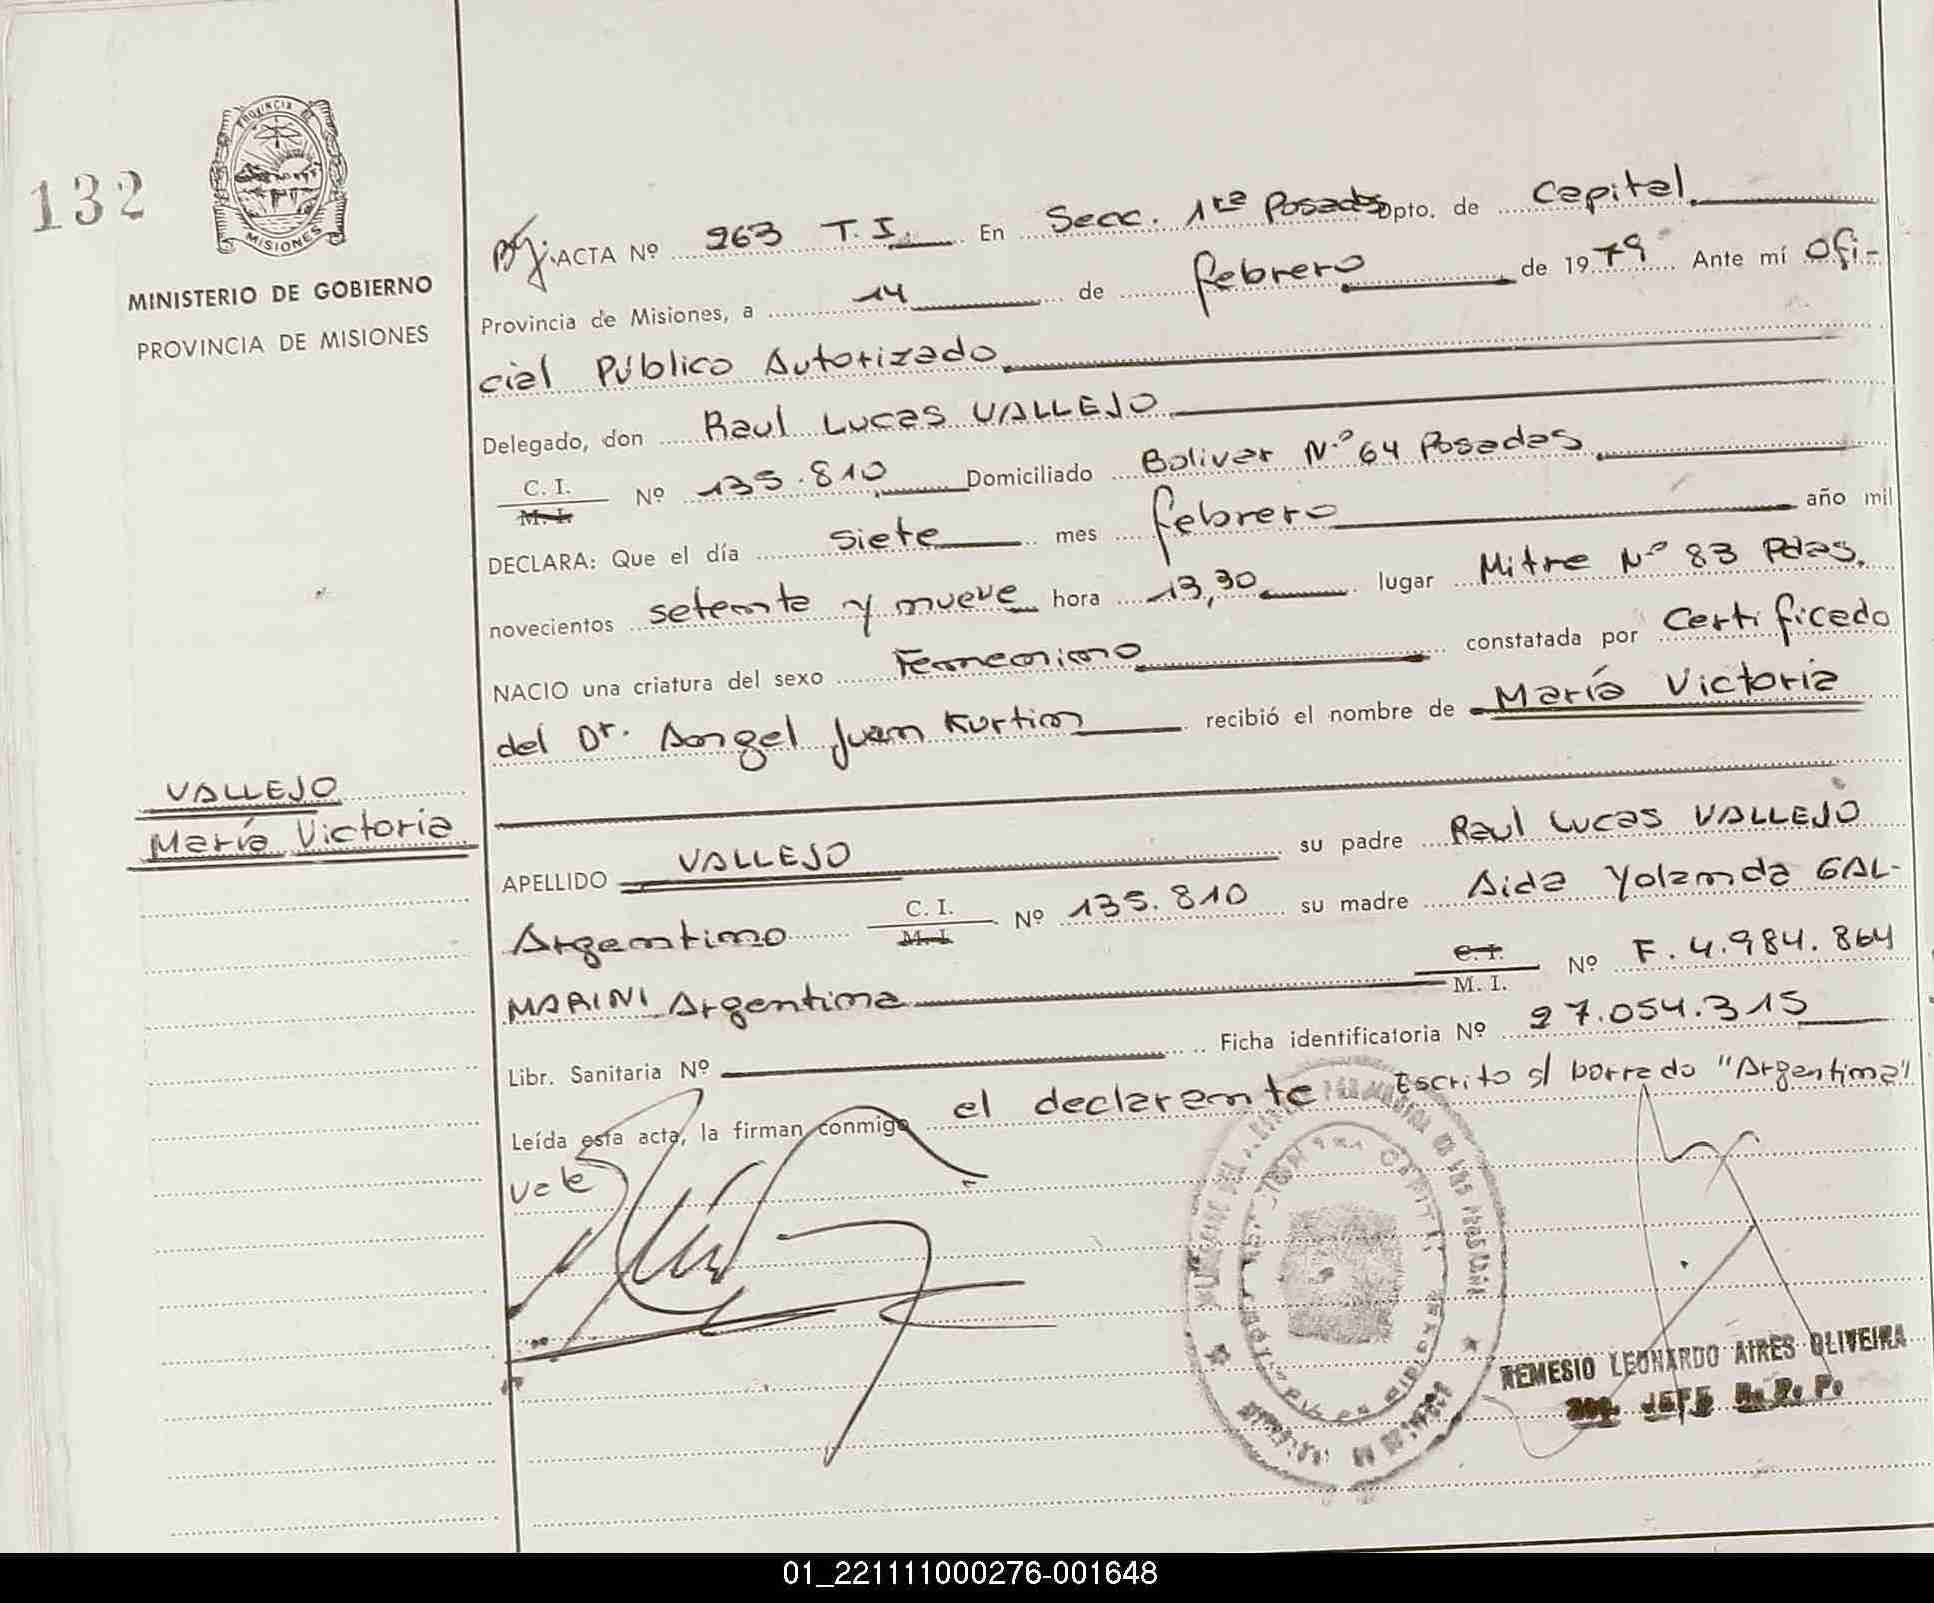 132
PROVINCIA DE
MISIONES
MINISTERIO DE GOBIERNO
PROVINCIA DE MISIONES
ACTA Nº 263 T.I. En Secc. 1ra Posadas Dpto. de Capital
Provincia de Misiones, a 14 de febrero de 1979 Ante mí Ofi-
cial Público Autorizado
Delegado, don Raul Lucas VALLEJO
C. I.
M. I. Nº 135.810 Domiciliado Bolivar Nº 64 Posadas
DECLARA: Que el día siete mes febrero año mil
novecientos setenta y nueve hora 13,30 lugar Mitre Nº 83 Pdas.
NACIO una criatura del sexo Femenino constatada por Certificado
del Dr. Angel Juan Kurtin recibió el nombre de María Victoria
VALLEJO
María Victoria
APELLIDO VALLEJO su padre Raul Lucas VALLEJO
Argentino C. I.
M. I. Nº 135.810 su madre Aida Yolanda GAL-
MARINI Argentina C. I.
M. I. Nº F. 4.984.864
Libr. Sanitaria Nº Ficha identificatoria Nº 27.054.315
Leída esta acta, la firman conmigo el declarante Escrito s/ borrado "Argentina"
vale
REMESIO LEONARDO AIRES OLIVEIRA
JEFE R. P. P.
01_221111000276-001648